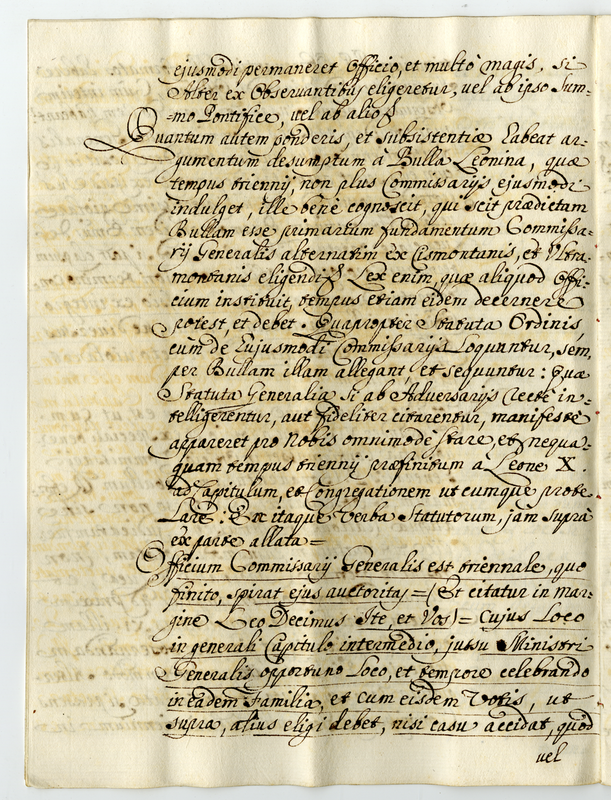 ejusmodi permaneret Officio, et multò magis, si
Alter ex Observantibus eligeretur, vel ab ipso Sum-
mo Pontifice, vel ab alios
Quantum autem ponderis, et subsistentiæ habeat ar-
gumentum desumptum à Bulla Leonina, quæ
tempus triennij, non plus Commissarijs ejusmodi
indulget, ille benè cognoscit, qui scit prædictam
Bullam esse primarium fundamentum Commissa-
rij Generalis alternatim ex Cismontanis, et Ultra-
montanis eligendi Lex enim, quæ aliquod Offi-
cium instituit, tempus etiam eidem decernere
potest, et debet. Quapropter Statuta Ordinis
cùm de hujusmodi Commissarijs loquuntur, sem-
per Bullam illam allegant, et sequuntur: Quæ
Statuta Generalia si ab Adversarijs rectè in-
telligerentur, aut fideliter citarentur, manifestè
appareret pro Nobis omnimodè stare, et nequa-
quam tempus triennij præfinitum à Leone X.
ad Capitulum, et Congregationem utcumque prote-
lari: En itaque verba Statutorum, jam suprà
ex parte allata=
Officium Commissarij Generalis est triennale, quo
finito, spirat ejus auctoritas=(Et citatur in mar-
gine Leo Decimus Ite, et Vos)= Cujus loco
in generali Capitulo intermedio, jussu Ministri
Generalis opportuno loco, et tempore celebrando
in eadem Familia, et cum eisdem Votis, ut
supra, alius eligi debet, nisi casu accidat, quod
vel